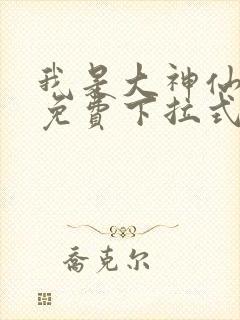 我是大神仙
免費下拉式
喬克尔